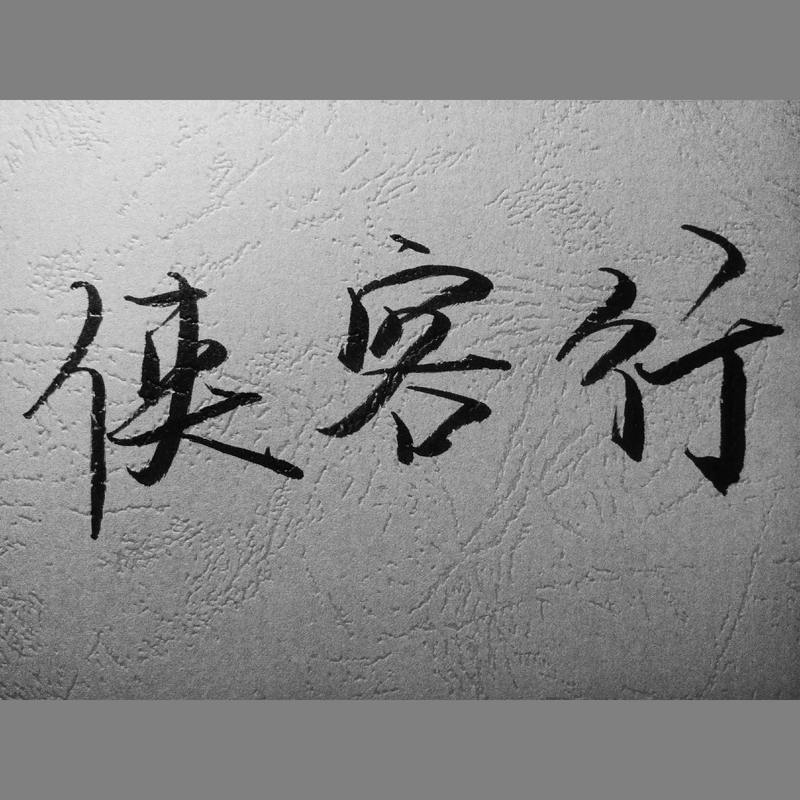 侠客行